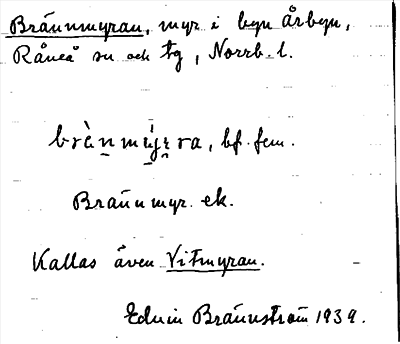 Brännmyran, myr i byn Årbyn,
Råneå sn och tg, Norrb. l.
bràn̥mýr̥ra, bf. fem.
Brännmyr. ek.
Kallas även Vitmyran.
Edvin Brännström 1939.